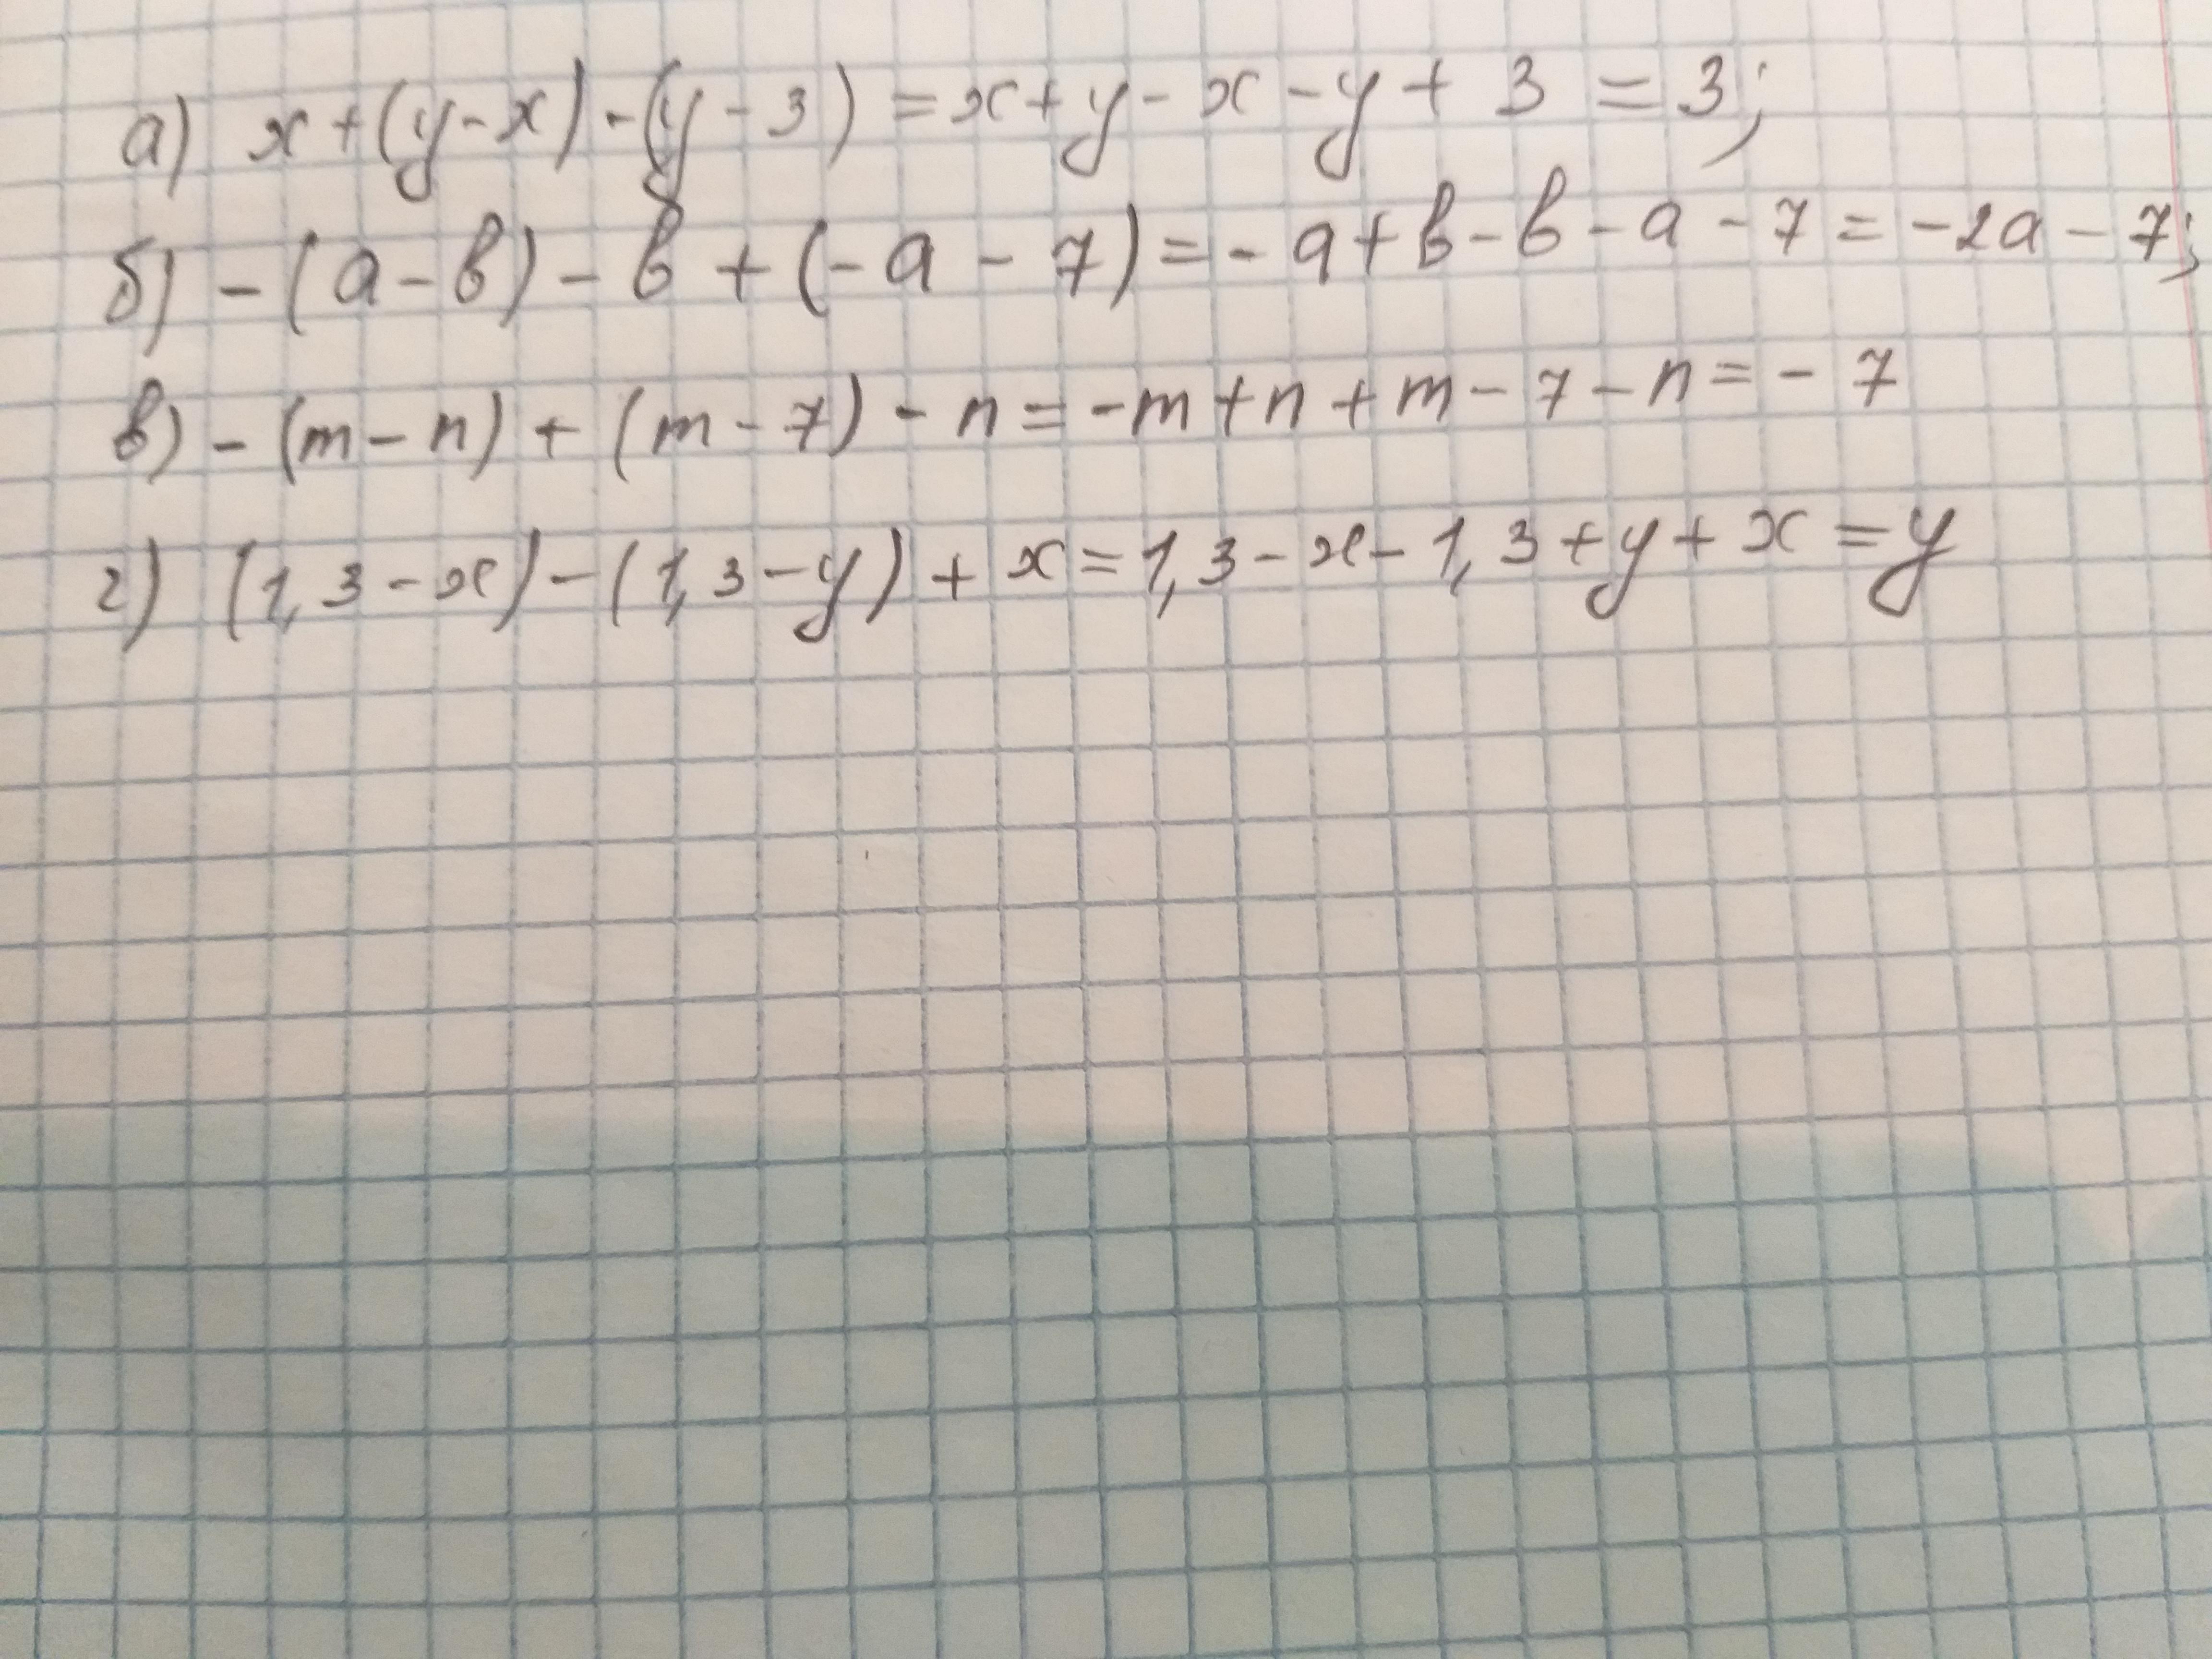 а) x + (y - x) - (y - 3) = x + y - x - y + 3 = 3;
б) - (a - b) - b + (- a - 7) = - a + b - b - a - 7 = -2a - 7;
в) - (m - n) + (m - 7) - n = -m + n + m - 7 - n = - 7
г) (1,3 - x) - (1,3 - y) + x = 1,3 - x - 1,3 + y + x = y